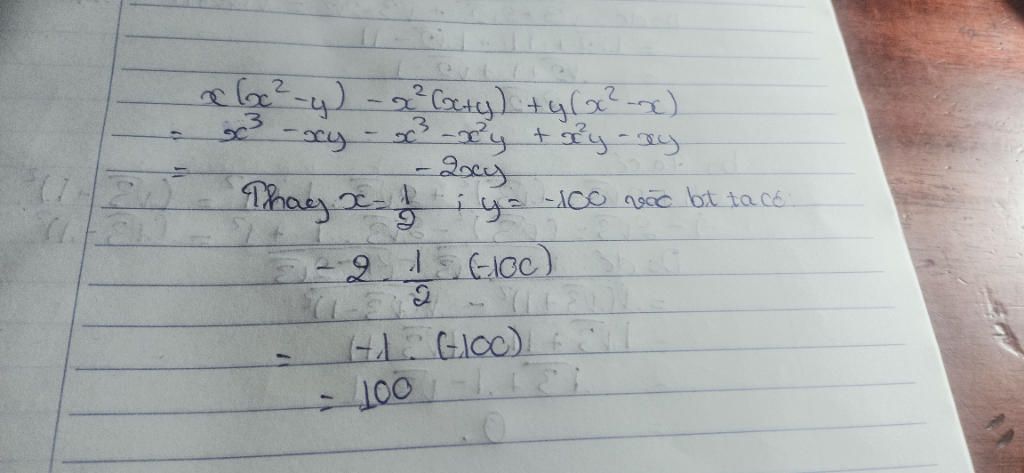 x(x² - y) - x²(x+y) + y(x² - x)
= x³ - xy - x³ - x²y + x²y - xy
= - 2xy
Thay x = 1/2 ; y = -100 vào bt ta có:
- 2 . 1/2 . (-100)
= -1 . (-100)
= 100